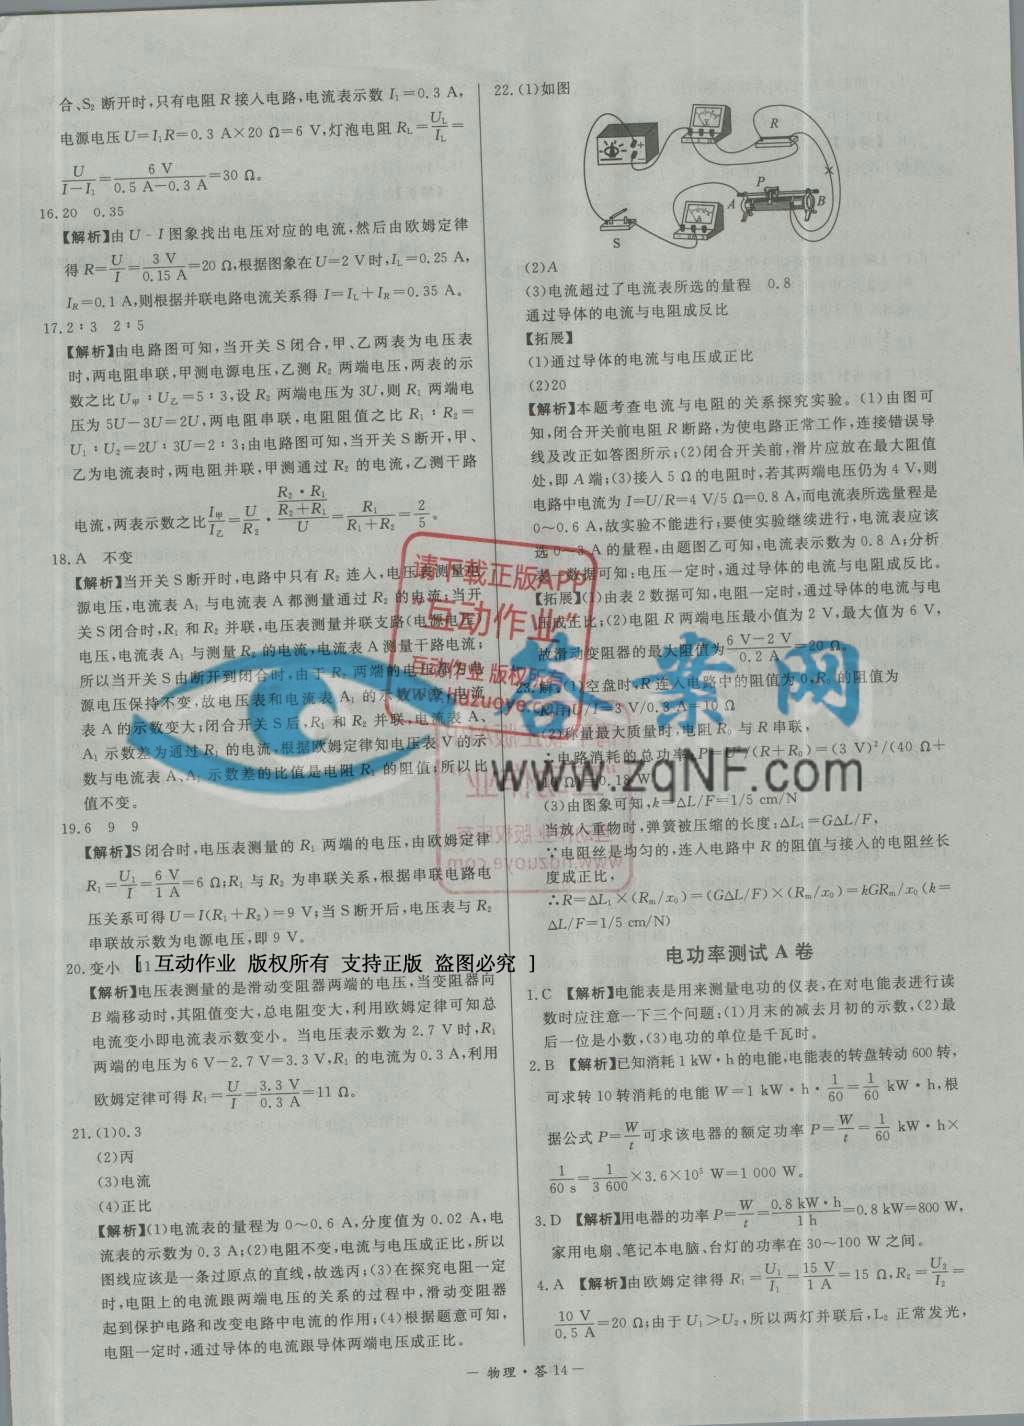 合、S₂ 断开时,只有电阻 R 接入电路,电流表示数 I₁=0.3 A,
电源电压 U=I₁R=0.3 A×20 Ω=6 V,灯泡电阻 R_L=U_L/I_L=
U/(I-I₁)=6 V/(0.5 A-0.3 A)=30 Ω。
16.20 0.35
【解析】由 U-I 图象找出电压对应的电流,然后由欧姆定律
得 R=U/I=3 V/0.15 A=20 Ω,根据图象在 U=2 V 时,I_L=0.25 A,
I_R=0.1 A,则根据并联电路电流关系得 I=I_L+I_R=0.35 A。
17.2∶3 2∶5
【解析】由电路图可知,当开关 S 闭合,甲、乙两表为电压表
时,两电阻串联,甲测电源电压,乙测 R₂ 两端电压,两表的示
数之比 U甲∶U乙=5∶3,设 R₂ 两端电压为 3U,则 R₁ 两端电
压为 5U-3U=2U,两电阻串联,电阻阻值之比 R₁∶R₂=
U₁∶U₂=2U∶3U=2∶3;由电路图可知,当开关 S 断开,甲、
乙为电流表时,两电阻并联,甲测通过 R₂ 的电流,乙测干路
电流,两表示数之比 I甲/I乙=U/R₂·(R₂·R₁/(R₂+R₁))/U=R₁/(R₁+R₂)=2/5。
18.A 不变
【解析】当开关 S 断开时,电路中只有 R₂ 连入,电压表测量电
源电压,电流表 A₁ 与电流表 A 都测量通过 R₂ 的电流;当开
关 S 闭合时,R₁ 和 R₂ 并联,电压表测量并联支路(电源电压)
电压,电流表 A₁ 与测量 R₂ 的电流,电流表 A 测量干路电流;
所以当开关 S 由断开到闭合时,由于 R₂ 两端的电压都为电
源电压保持不变,故电压表和电流表 A₁ 的示数不变;电流
表 A 的示数变大;闭合开关 S 后,R₁ 和 R₂ 并联,电流表 A、
A₁ 示数差为通过 R₁ 的电流,根据欧姆定律知电压表 V 的示
数与电流表 A、A₁ 示数差的比值是电阻 R₁ 的阻值;所以比
值不变。
19.6 9 9
【解析】S 闭合时,电压表测量的 R₁ 两端的电压,由欧姆定律
R₁=U₁/I=6 V/1 A=6 Ω;R₁ 与 R₂ 为串联关系,根据串联电路电
压关系可得 U=I(R₁+R₂)=9 V;当 S 断开后,电压表与 R₂
串联故示数为电源电压,即 9 V。
20.变小 11
[ 互动作业 版权所有 支持正版 盗图必究 ]
【解析】电压表测量的是滑动变阻器两端的电压,当变阻器向
B 端移动时,其阻值变大,总电阻变大,利用欧姆定律可知总
电流变小即电流表示数变小。当电压表示数为 2.7 V 时,R₁
两端的电压为 6 V-2.7 V=3.3 V,R₁ 的电流为 0.3 A,利用
欧姆定律可得 R₁=U/I=3.3 V/0.3 A=11 Ω。
21.(1)0.3
(2)丙
(3)电流
(4)正比
【解析】(1)电流表的量程为 0～0.6 A,分度值为 0.02 A,电
流表的示数为 0.3 A;(2)电阻不变,电流与电压成正比,所以
图线应该是一条过原点的直线,故选丙;(3)在探究电阻一定
时,电阻上的电流跟两端电压的关系的过程中,滑动变阻器
起到保护电路和改变电路中电流的作用;(4)根据题意可知,
电阻一定时,通过导体的电流跟导体两端电压成正比。
22.(1)如图
V
R
P
A
B
A
S
(2)A
(3)电流超过了电流表所选的量程 0.8
通过导体的电流与电阻成反比
【拓展】
(1)通过导体的电流与电压成正比
(2)20
【解析】本题考查电流与电阻的关系探究实验。(1)由图可
知,闭合开关前电阻 R 断路,为使电路正常工作,连接错误导
线及改正如答图所示;(2)闭合开关前,滑片应放在最大阻值
处,即 A 端;(3)接入 5 Ω 的电阻时,若其两端电压仍为 4 V,则
电路中电流为 I=U/R=4 V/5 Ω=0.8 A,而电流表所选量程是
0～0.6 A,故实验不能进行;要使实验继续进行,电流表应该
选 0～3 A 的量程,由题图乙可知,电流表示数为 0.8 A;分析
表一数据可知:电压一定时,通过导体的电流与电阻成反比。
【拓展】(1)由表 2 数据可知,电阻一定时,通过导体的电流与电
压成正比;(2)电阻 R 两端电压最小值为 2 V,最大值为 6 V,
故滑动变阻器的最大阻值为 (6 V-2 V)/0.2 A=20 Ω。
23.解:(1)空盘时,R 连入电路中的阻值为 0,R₀ 的阻值为
R₀=U/I=3 V/0.3 A=10 Ω
(2)称量最大质量时,电阻 R₀ 与 R 串联,
∴电路消耗的总功率:P=U²/(R+R₀)=(3 V)²/(40 Ω+
10 Ω)=0.18 W
(3)由图象可知,k=ΔL/F=1/5 cm/N
当放入重物时,弹簧被压缩的长度:ΔL₁=GΔL/F,
∵电阻丝是均匀的,连入电路中 R 的阻值与接入的电阻丝长
度成正比,
∴R=ΔL₁×(R_m/x₀)=(GΔL/F)×(R_m/x₀)=kGR_m/x₀(k=
ΔL/F=1/5 cm/N)
电功率测试 A 卷
1.C 【解析】电能表是用来测量电功的仪表,在对电能表进行读
数时应注意一下三个问题:(1)月末的减去月初的示数;(2)最
后一位是小数,(3)电功的单位是千瓦时。
2.B 【解析】已知消耗 1 kW·h 的电能,电能表的转盘转动 600 转,
可求转 10 转消耗的电能 W=1 kW·h·1/60=1/60 kW·h,根
据公式 P=W/t 可求该电器的额定功率 P=W/t=1/60 kW·h×
1/60 s=1/3 600×3.6×10⁵ W=1 000 W。
3.D 【解析】用电器的功率 P=W/t=0.8 kW·h/1 h=0.8 kW=800 W,
家用电扇、笔记本电脑、台灯的功率在 30～100 W 之间。
4.A 【解析】由欧姆定律得 R₁=U₁/I₁=15 V/1 A=15 Ω,R₂=U₂/I₂=
10 V/0.5 A=20 Ω;由于 U₁>U₂,所以两灯并联后,L₂ 正常发光,
请下载正版APP
“互动作业”
互动作业 版权所有
www.hdzuoye.com
答案网
www.zqNF.com
— 物理·答 14 —